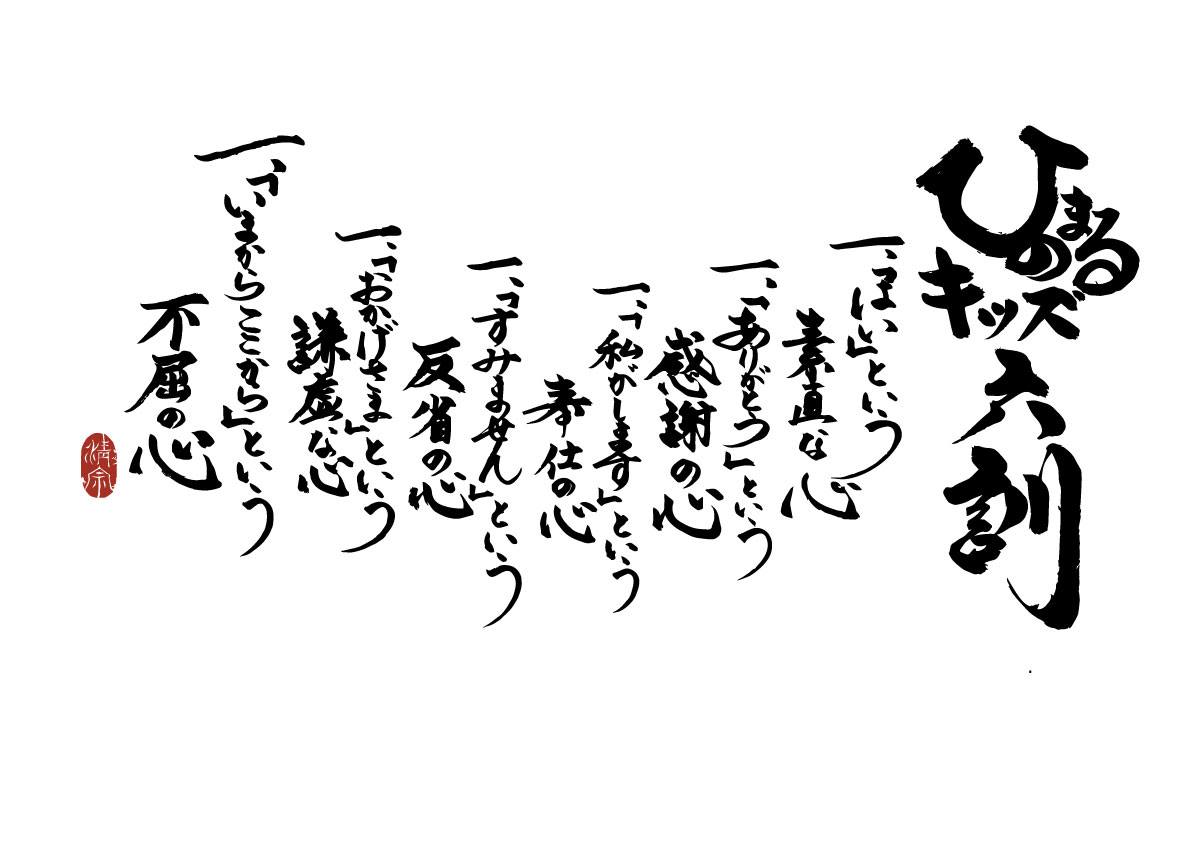 ひのまる
キッズ
六訓
一、「はい」という
素直な心
一、「ありがとう」という
感謝の心
一、「私がします」という
奉仕の心
一、「すみません」という
反省の心
一、「おかげさま」という
謙虚な心
一、「いまからここから」という
不屈の心